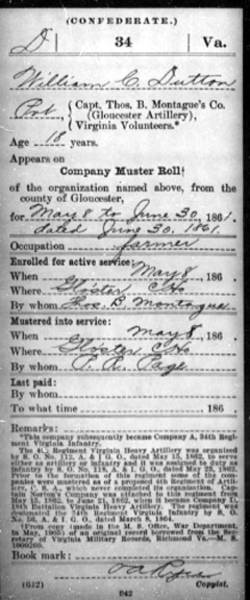 (CONFEDERATE.)
D | 34 | Va.
William C. Dutton
Pvt, { Capt. Thos. B. Montague's Co.
(Gloucester Artillery),
Virginia Volunteers.*
Age 18 years.
Appears on
Company Muster Roll†
of the organization named above, from the
county of Gloucester,
for May 8 to June 30, 1861.
dated June 30, 1861.
Occupation farmer
Enrolled for active service:
When May 8, 186 .
Where Gloster C Ho
By whom Thos. B Montague
Mustered into service:
When May 8, 186 .
Where Gloster C Ho
By whom Page
Last paid:
By whom
To what time 186 .
Remarks:
*This company subsequently became Company A, 34th Regiment Virginia Infantry.
The 4th Regiment Virginia Heavy Artillery was organized
by S. O. No. 112, A. & I. G. O., dated May 15, 1862, to serve
either as artillery or infantry and it was assigned to duty as
infantry by S. O. No. 118, A. & I. G. O., dated May 23, 1862.
Prior to the formation of this regiment some of the companies
were mustered as of a proposed 4th Regiment of Artillery,
C. S. A., which never completed its organization. Captain
Norton's Company was attached to this regiment from
May 15, 1862, to June 21, 1862, when it became Company
18th Battalion Virginia Heavy Artillery. The regiment was
designated the 34th Regiment Virginia Infantry by S. O.
No. 56, A. & I. G. O., dated March 8, 1864.
†From copy (made in the M. S. Office, War Department,
in May, 1905) of an original record borrowed from the Secretary
of Virginia Military Records, Richmond Va.—M. S.
1000260.
Book mark:
(642)
Copyist.
642